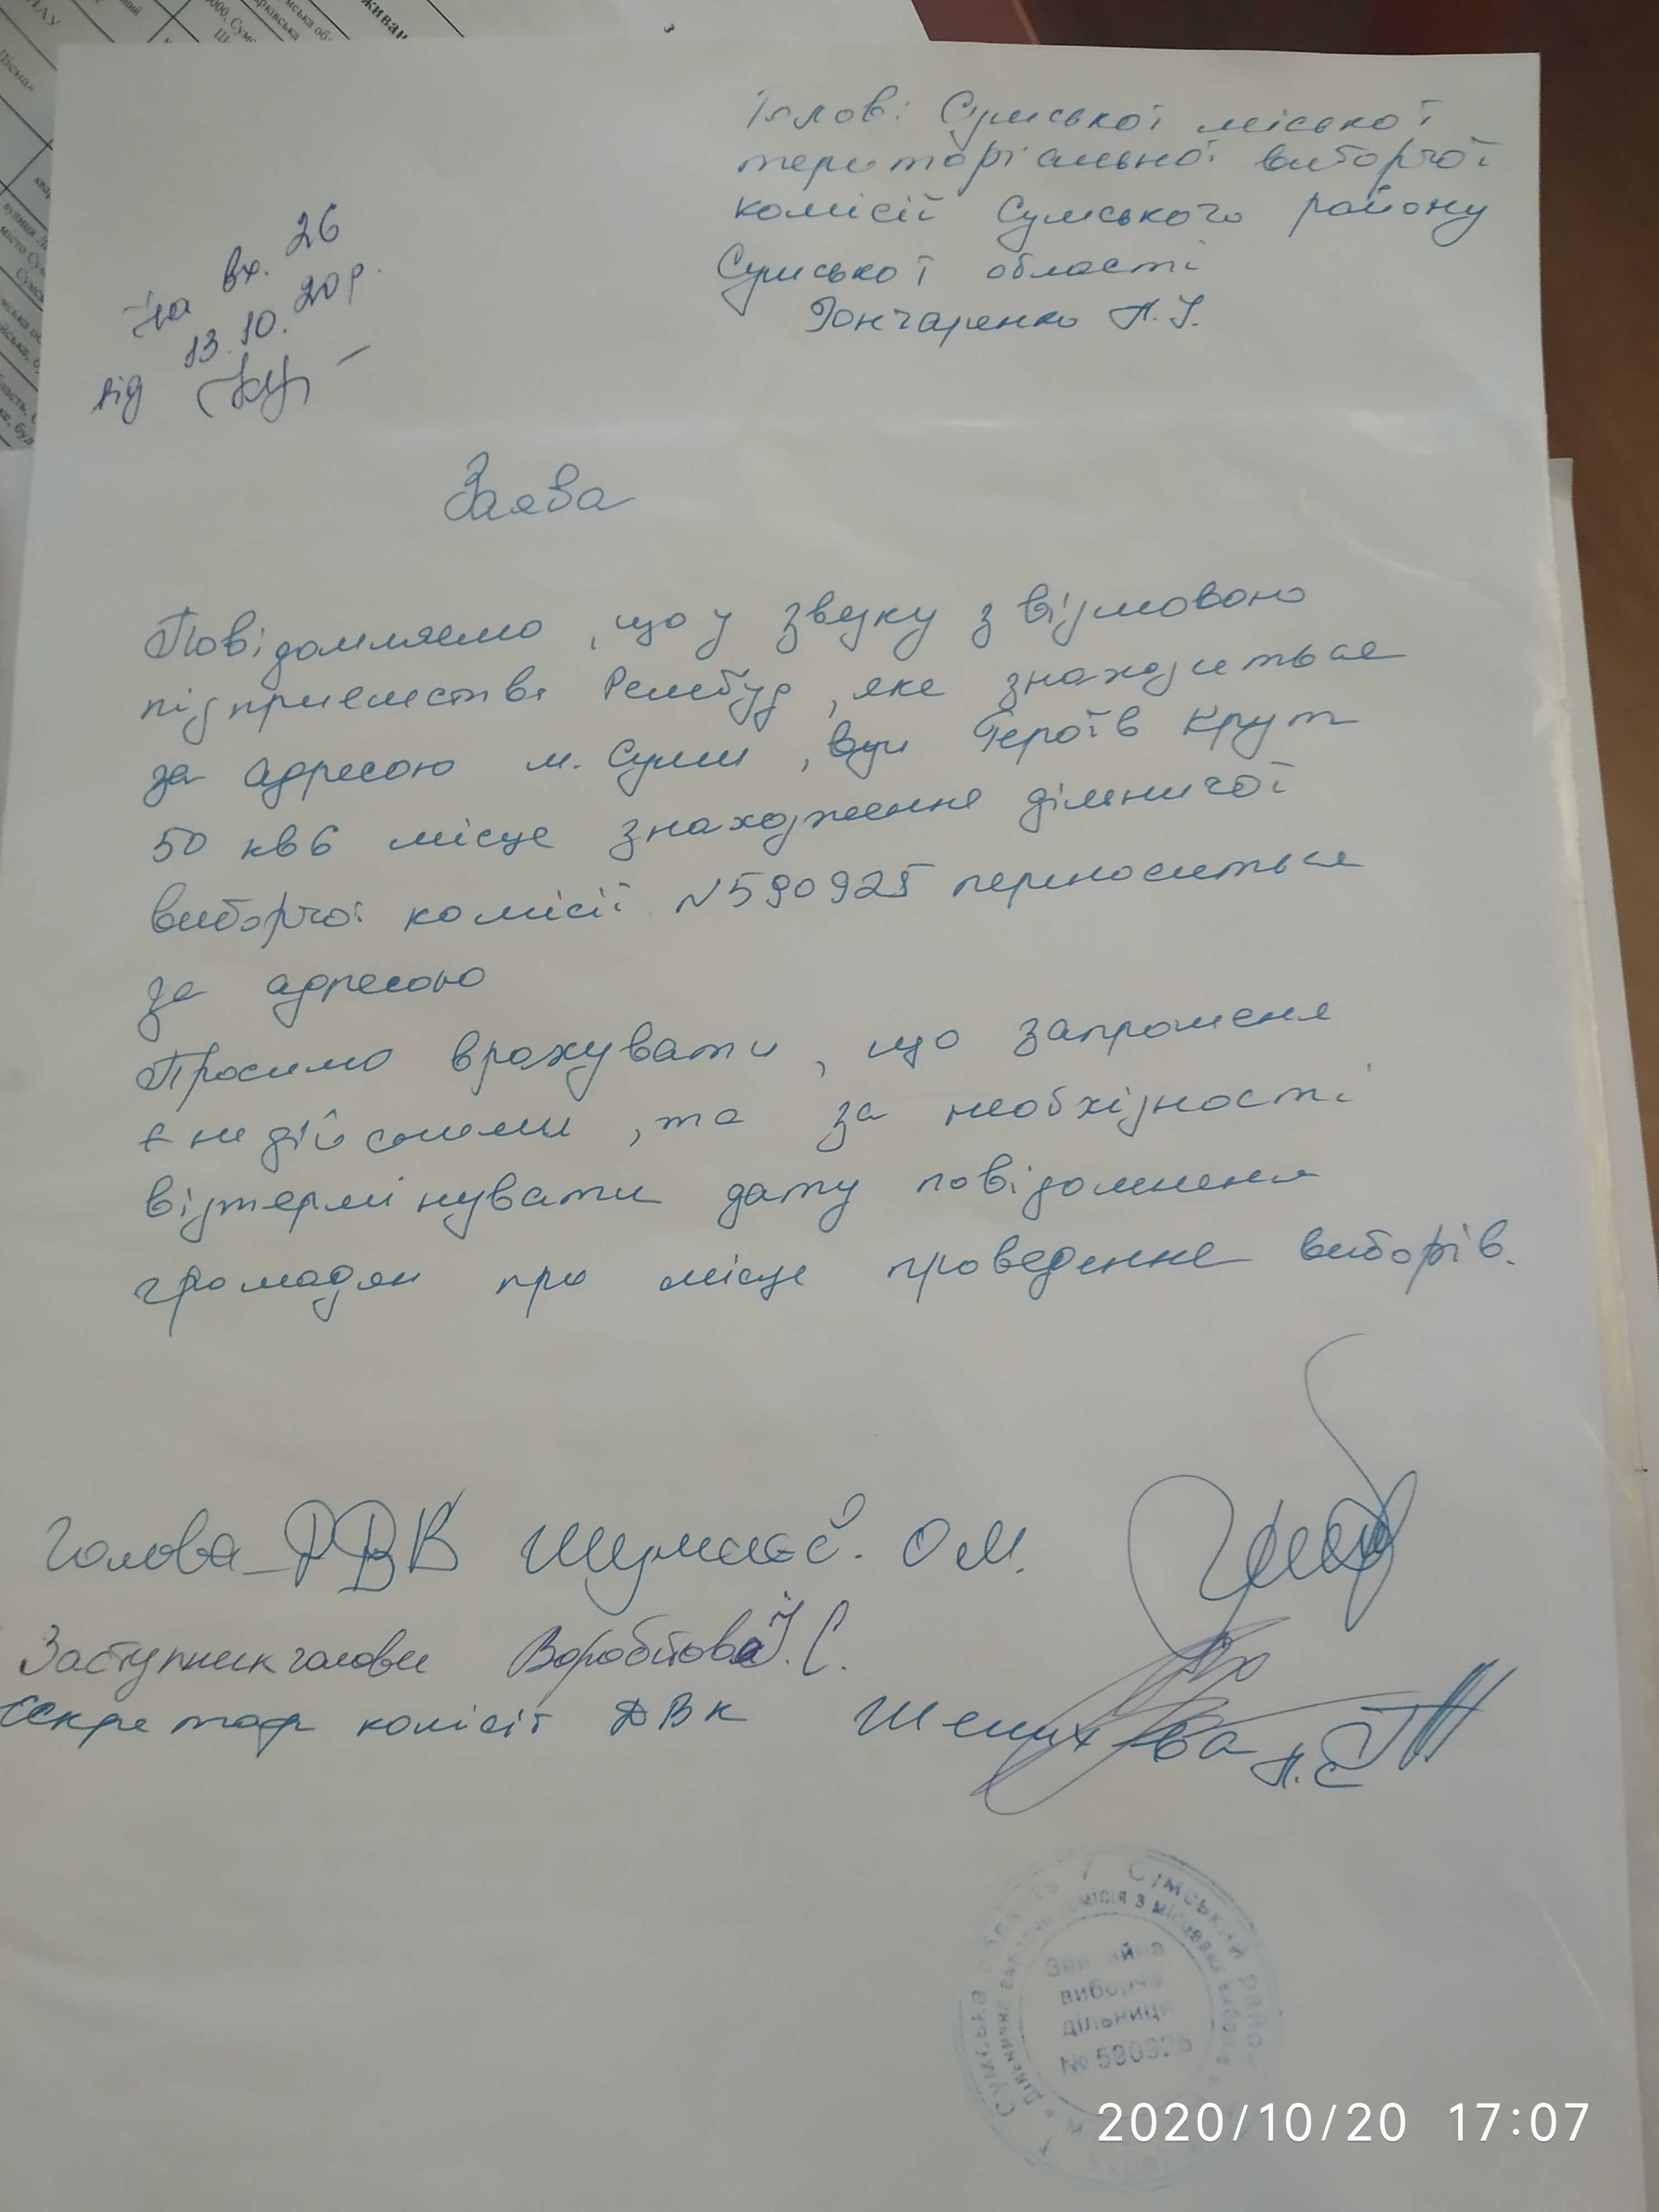 Голові Сумської міської
територіальної виборчої
комісії Сумського району
Сумської області
Гончаренко Н.І.
вх. 26
від 13.10.20р.
Заява
Повідомляємо, що у звязку з відмовою
підприємства Рембуд, яке знаходиться
за адресою м. Суми, вул Героїв Крут
50 кв6 місце знаходження дільничої
виборчої комісії №590925 переноситься
за адресою
Просимо врахувати, що запрошеня
є не дійсними, та за необхідності
відтермінувати дату повідомленя
громадян про місце проведення виборів.
Голова ДВК О.М.
Заступник голови Воробйова І.С.
Секретар комісії ДВК
Сумська область Сумський район
Дільнича виборча комісія з місцевих виборів
Звичайна
виборча
дільниця
№ 590925
2020/10/20 17:07